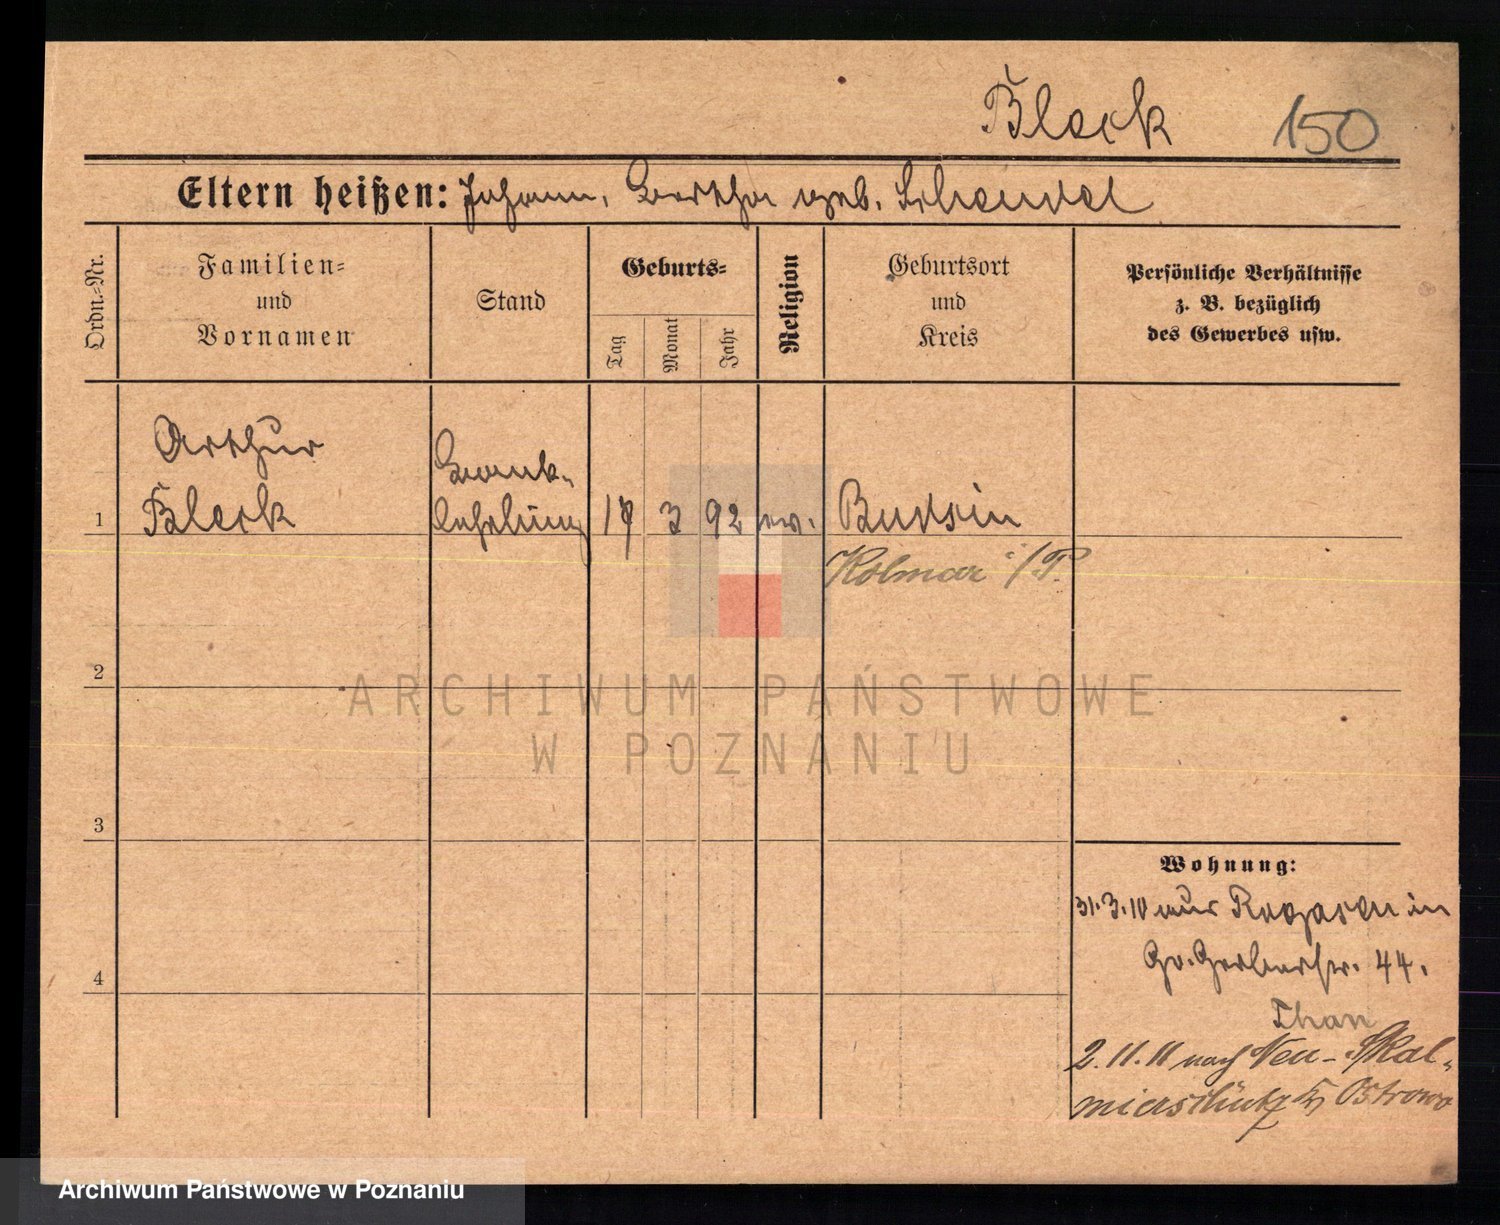 Bleck 150
Eltern heißen: Johann, Bertha geb. Schendel
Ordn.-Nr.
Familien-
und
Vornamen
Stand
Geburts-
Tag
Monat
Jahr
Religion
Geburtsort
und
Kreis
Persönliche Verhältnisse
z. B. bezüglich
des Gewerbes usw.
Arthur
Bleck
Bank-
lehrling
1
17 3 92 ev. Budsin
Kolmar i/P.
2
3
4
ARCHIWUM PAŃSTWOWE
W POZNANIU
Wohnung:
31.3.10 aus Rogasen in
Gr. Gerberstr. 44.
2.11.11 nach Neu-Skal-
mierschütz Kr Ostrowo
Archiwum Państwowe w Poznaniu